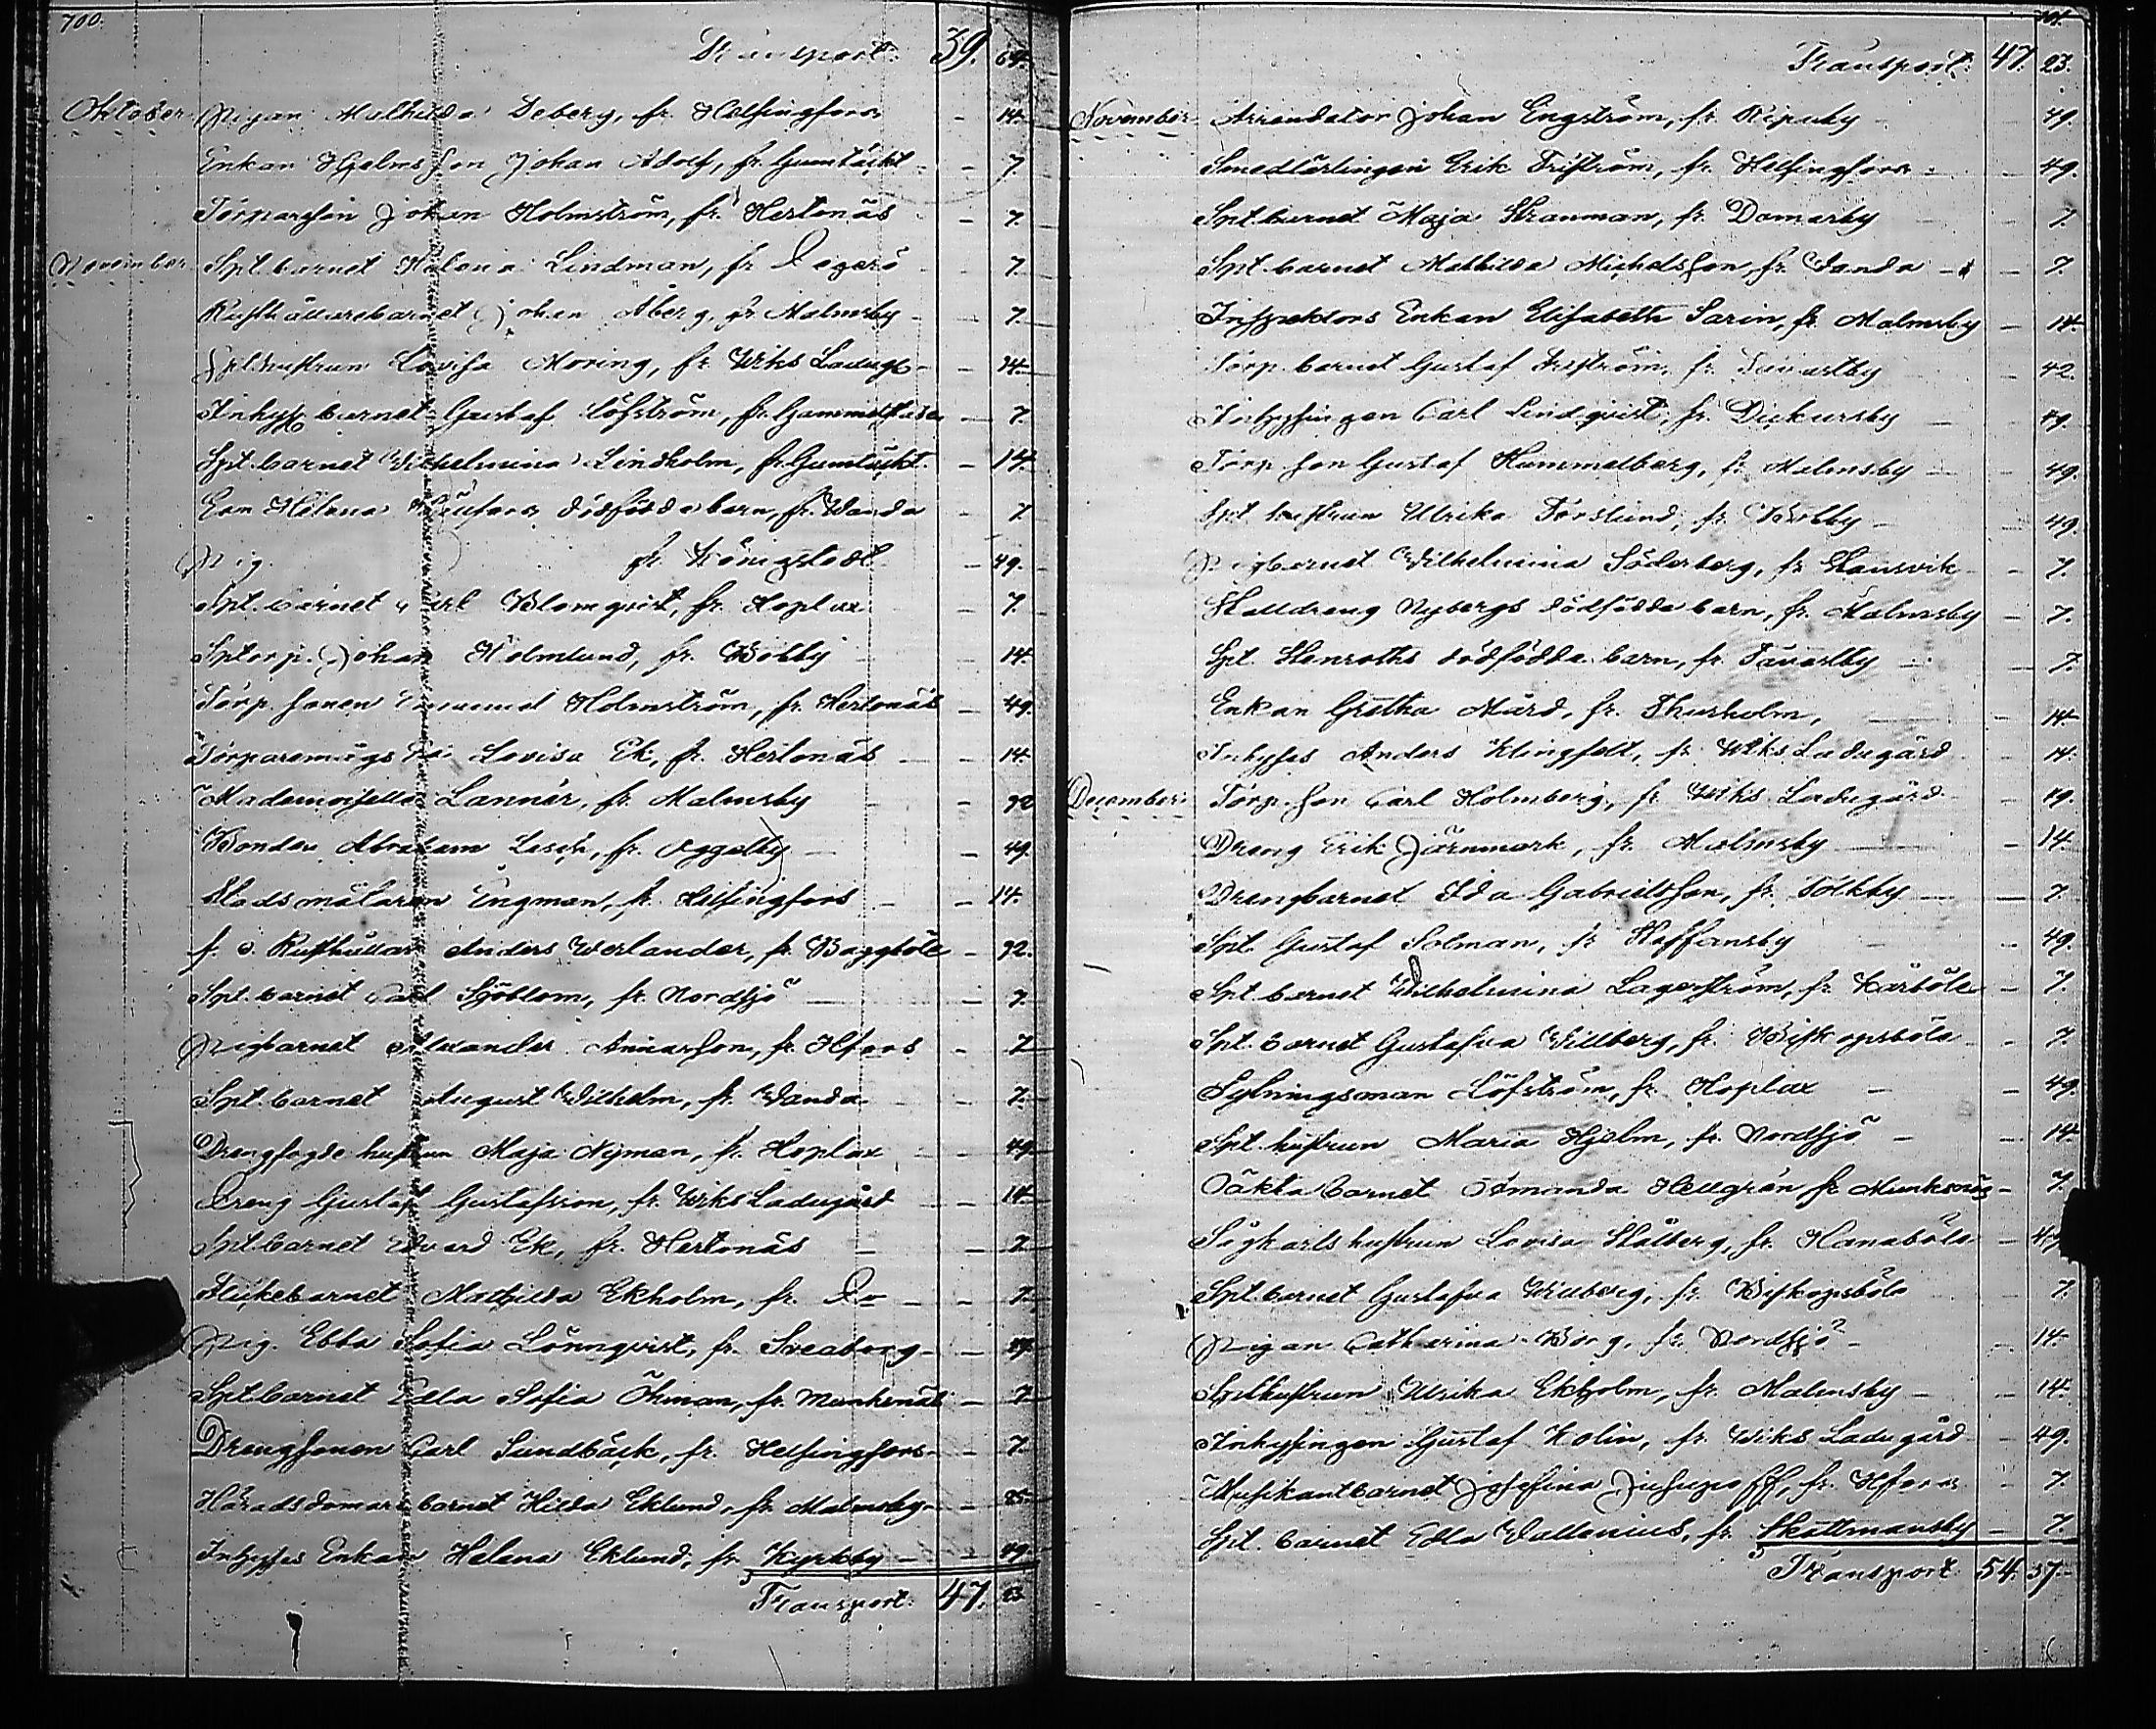 700.
Transport: 39. 64.
Oktober Pigan Mathilda Deberg, fr. Helsingfors - 14.
Enkan Hjelms son Johan Adolf, fr. Gumtäckt - 7.
Torparson Johan Holmström, fr. Hertonäs - 7.
November Spt. barnet Helena Lindman, fr. Degerö - 7.
Rusthållarebarnet Johan Åberg, fr. Malmsby - 7.
Spt. hustrun Lovisa Moring, fr. Wiks Ladug. - 14.
Inhys. barnet Gustaf Löfström, fr. Gammelstaden - 7.
Spt. barnet Wilhelmina Lindholm, fr. Gumtäckt. - 14.
Helena dödfödda barn, fr. Wanda - 7.
Pig. fr. Königstedt - 49.
Spt. barnet Carl Blomqvist, fr. Hoplax 7.
Sptorp. Johan Holmlund, fr. Bobby - 14.
Torp. sonen Emanuel Holmström, fr. Hertonäs - 49.
Torparemågs Lovisa Ek, fr. Hertonäs - 14.
Mademoiselle Lannér, fr. Malmsby - 92
Bonden Abraham Lesch, fr. Åggelby - 49.
Stadsmålaren Engman, fr. Helsingfors - 14.
f. d. Rusthållar Anders Werlander, fr. Baggböle - 92.
Spt. barnet Carl Sjöblom, fr. Nordsjö - 7.
Pigbarnet Alexander Annasson, fr. Hfors - 7
Spt. barnet August Wilhelm, fr. Wanda - 7.
Drengfogde hustrun Maja Nyman, fr. Hoplax 49
Dreng Gustaf Gustafsson, fr. Wiks Ladugård - 14
Spt. barnet Edvard Ek, fr. Hertonäs - 7
Flickebarnet Mathilda Ekholm, fr. Do - 7.
Pig. Ebba Sofia Lönnqvist, fr. Sveaborg - 49
Spt. barnet Edla Sofia Öhman, fr. Munksnäs - 7.
Drengsonen Carl Sundbäck, fr. Helsingfors - 7.
Häradsdomare barnet Hilda Eklund, fr. Malmsby - 85.
Inhyses Enkan Helena Eklund, fr. Kyrkby - 49.
Transport: 47. 23.
701.
Transport: 47. 23.
November Arrendator Johan Engström, fr. Ripuby 49.
Smedlärlingen Erik Friström, fr. Helsingfors - 49.
Spt. barnet Maja Stranman, fr. Domarby 7.
Spt. barnet Mathilda Michelsson, fr. Wanda - 7.
Inspektors Enkan Elisabeth Sarin, fr. Malmsby - 14
Torp. barnet Gustaf Friström, fr. Tavastby 42.
Inhysingen Carl Lindqvist, fr. Dickursby 49.
Torp. son Gustaf Hummelberg, fr. Malmsby - 49.
Spt. hustrun Ulrika Forslund, fr. Bobby - 49.
Pigbarnet Wilhelmina Söderberg, fr. Stansvik - 7.
Stalldreng Nybergs dödfödda barn, fr. Malmsby - 7.
Spt. Stenroths dödfödda barn, fr. Tavastby - 7.
Enkan Gretha Mård, fr. Thurholm, - 14
Inhyses Anders Klingfelt, fr. Wiks Ladugård 14.
December: Torp. son Carl Holmberg, fr. Wiks Ladugård - 49.
Dreng Erik Järnmark, fr. Malmsby - 14
Drengbarnet Ida Gabrielsson, fr. Tolkby - 7.
Spt. Gustaf Solman, fr. Staffansby - 49.
Spt. barnet Wilhelmina Lagerström, fr. Kårböle - 7.
Spt. barnet Gustafva Willberg, fr. Biskopsböle - 7.
Sytningsman Löfström, fr. Hoplax - 49.
Spt. hustrun Maria Hjelm, fr. Nordsjö - 14
Oäkta barnet Amanda Hellgrén fr. Munksnäs - 7.
Sågkarls hustrun Lovisa Stålberg, fr. Hanaböle - 49
Spt. barnet Gustafva Willberg, fr. Biskopsböle 7.
Pigan Catharina Borg, fr. Nordsjö - 14.
Spt. hustrun Ulrika Ekholm, fr. Malmsby - 14.
Inhysingen Gustaf Kolin, fr. Wiks Ladugård - 49.
Musikantbarnet Josefina Jusupoff, fr. Hfors - 7.
Spt. barnet Edla Wallenius, fr. Skattmansby - 7.
Transport 54. 37.